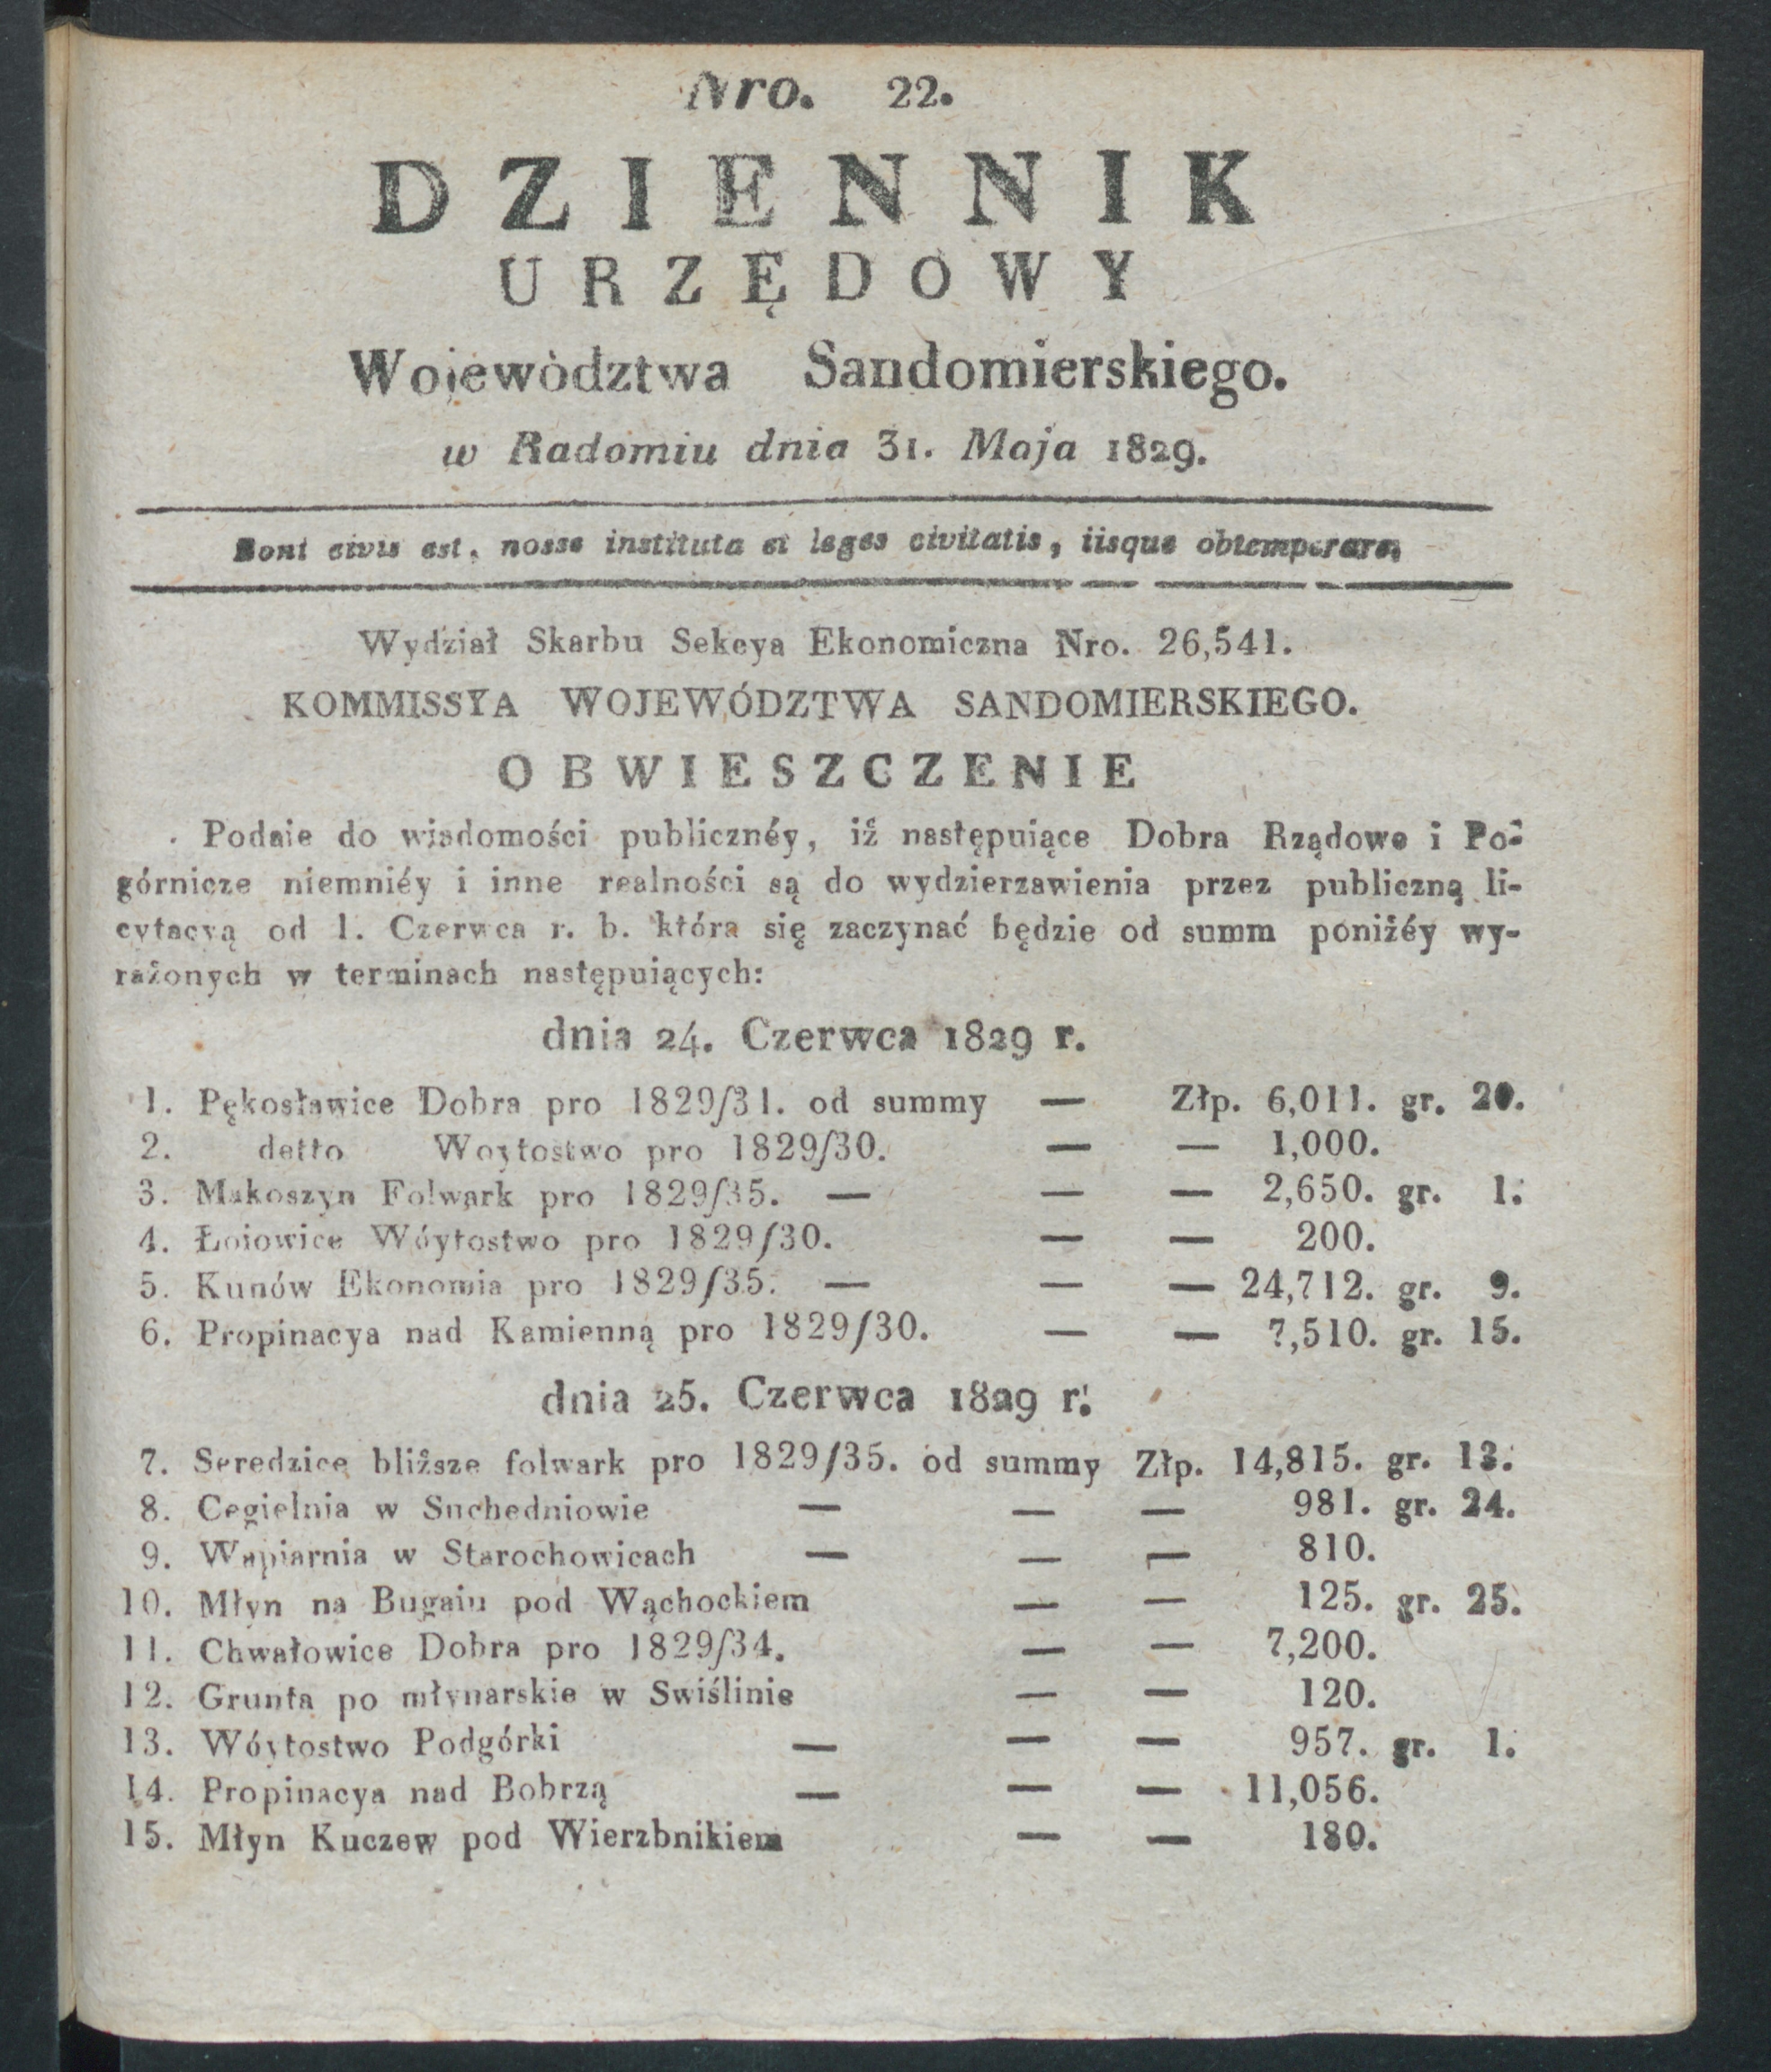 Nro. 22.
DZIENNIK
URZĘDOWY
Woiewództwa Sandomierskiego.
w Radomiu dnia 31. Maja 1829.
Boni civis est, nosse instituta et leges civitatis, iisque obtemperare.
Wydział Skarbu Sekcya Ekonomiczna Nro. 26,541.
KOMMISSYA WOJEWÓDZTWA SANDOMIERSKIEGO.
OBWIESZCZENIE
Podaie do wiadomości publicznéy, iż następuiące Dobra Rządowe i Po-
górnicze niemniéy i inne realności są do wydzierzawienia przez publiczną li-
cytacyą od 1. Czerwca r. b. która się zaczynać będzie od summ poniżéy wy-
rażonych w terminach następuiących:
dnia 24. Czerwca 1829 r.
1. Pękosławice Dobra pro 1829/31. od summy — Złp. 6,011. gr. 20.
2. detto Woytostwo pro 1829/30. — — 1,000.
3. Makoszyn Folwark pro 1829/35. — — — 2,650. gr. 1.
4. Łoiowice Wóytostwo pro 1829/30. — — 200.
5. Kunów Ekonomia pro 1829/35. — — — 24,712. gr. 9.
6. Propinacya nad Kamienną pro 1829/30. — — 7,510. gr. 15.
dnia 25. Czerwca 1829 r.
7. Seredzice bliższe folwark pro 1829/35. od summy Złp. 14,815. gr. 13.
8. Cegielnia w Suchedniowie — — — 981. gr. 24.
9. Wapiarnia w Starochowicach — — — 810.
10. Młyn na Bugaiu pod Wąchockiem — — 125. gr. 25.
11. Chwałowice Dobra pro 1829/34. — — 7,200.
12. Grunta po młynarskie w Swiślinie — — 120.
13. Wóytostwo Podgórki — — — 957. gr. 1.
14. Propinacya nad Bobrzą — — — 11,056.
15. Młyn Kuczew pod Wierzbnikiem — — 180.